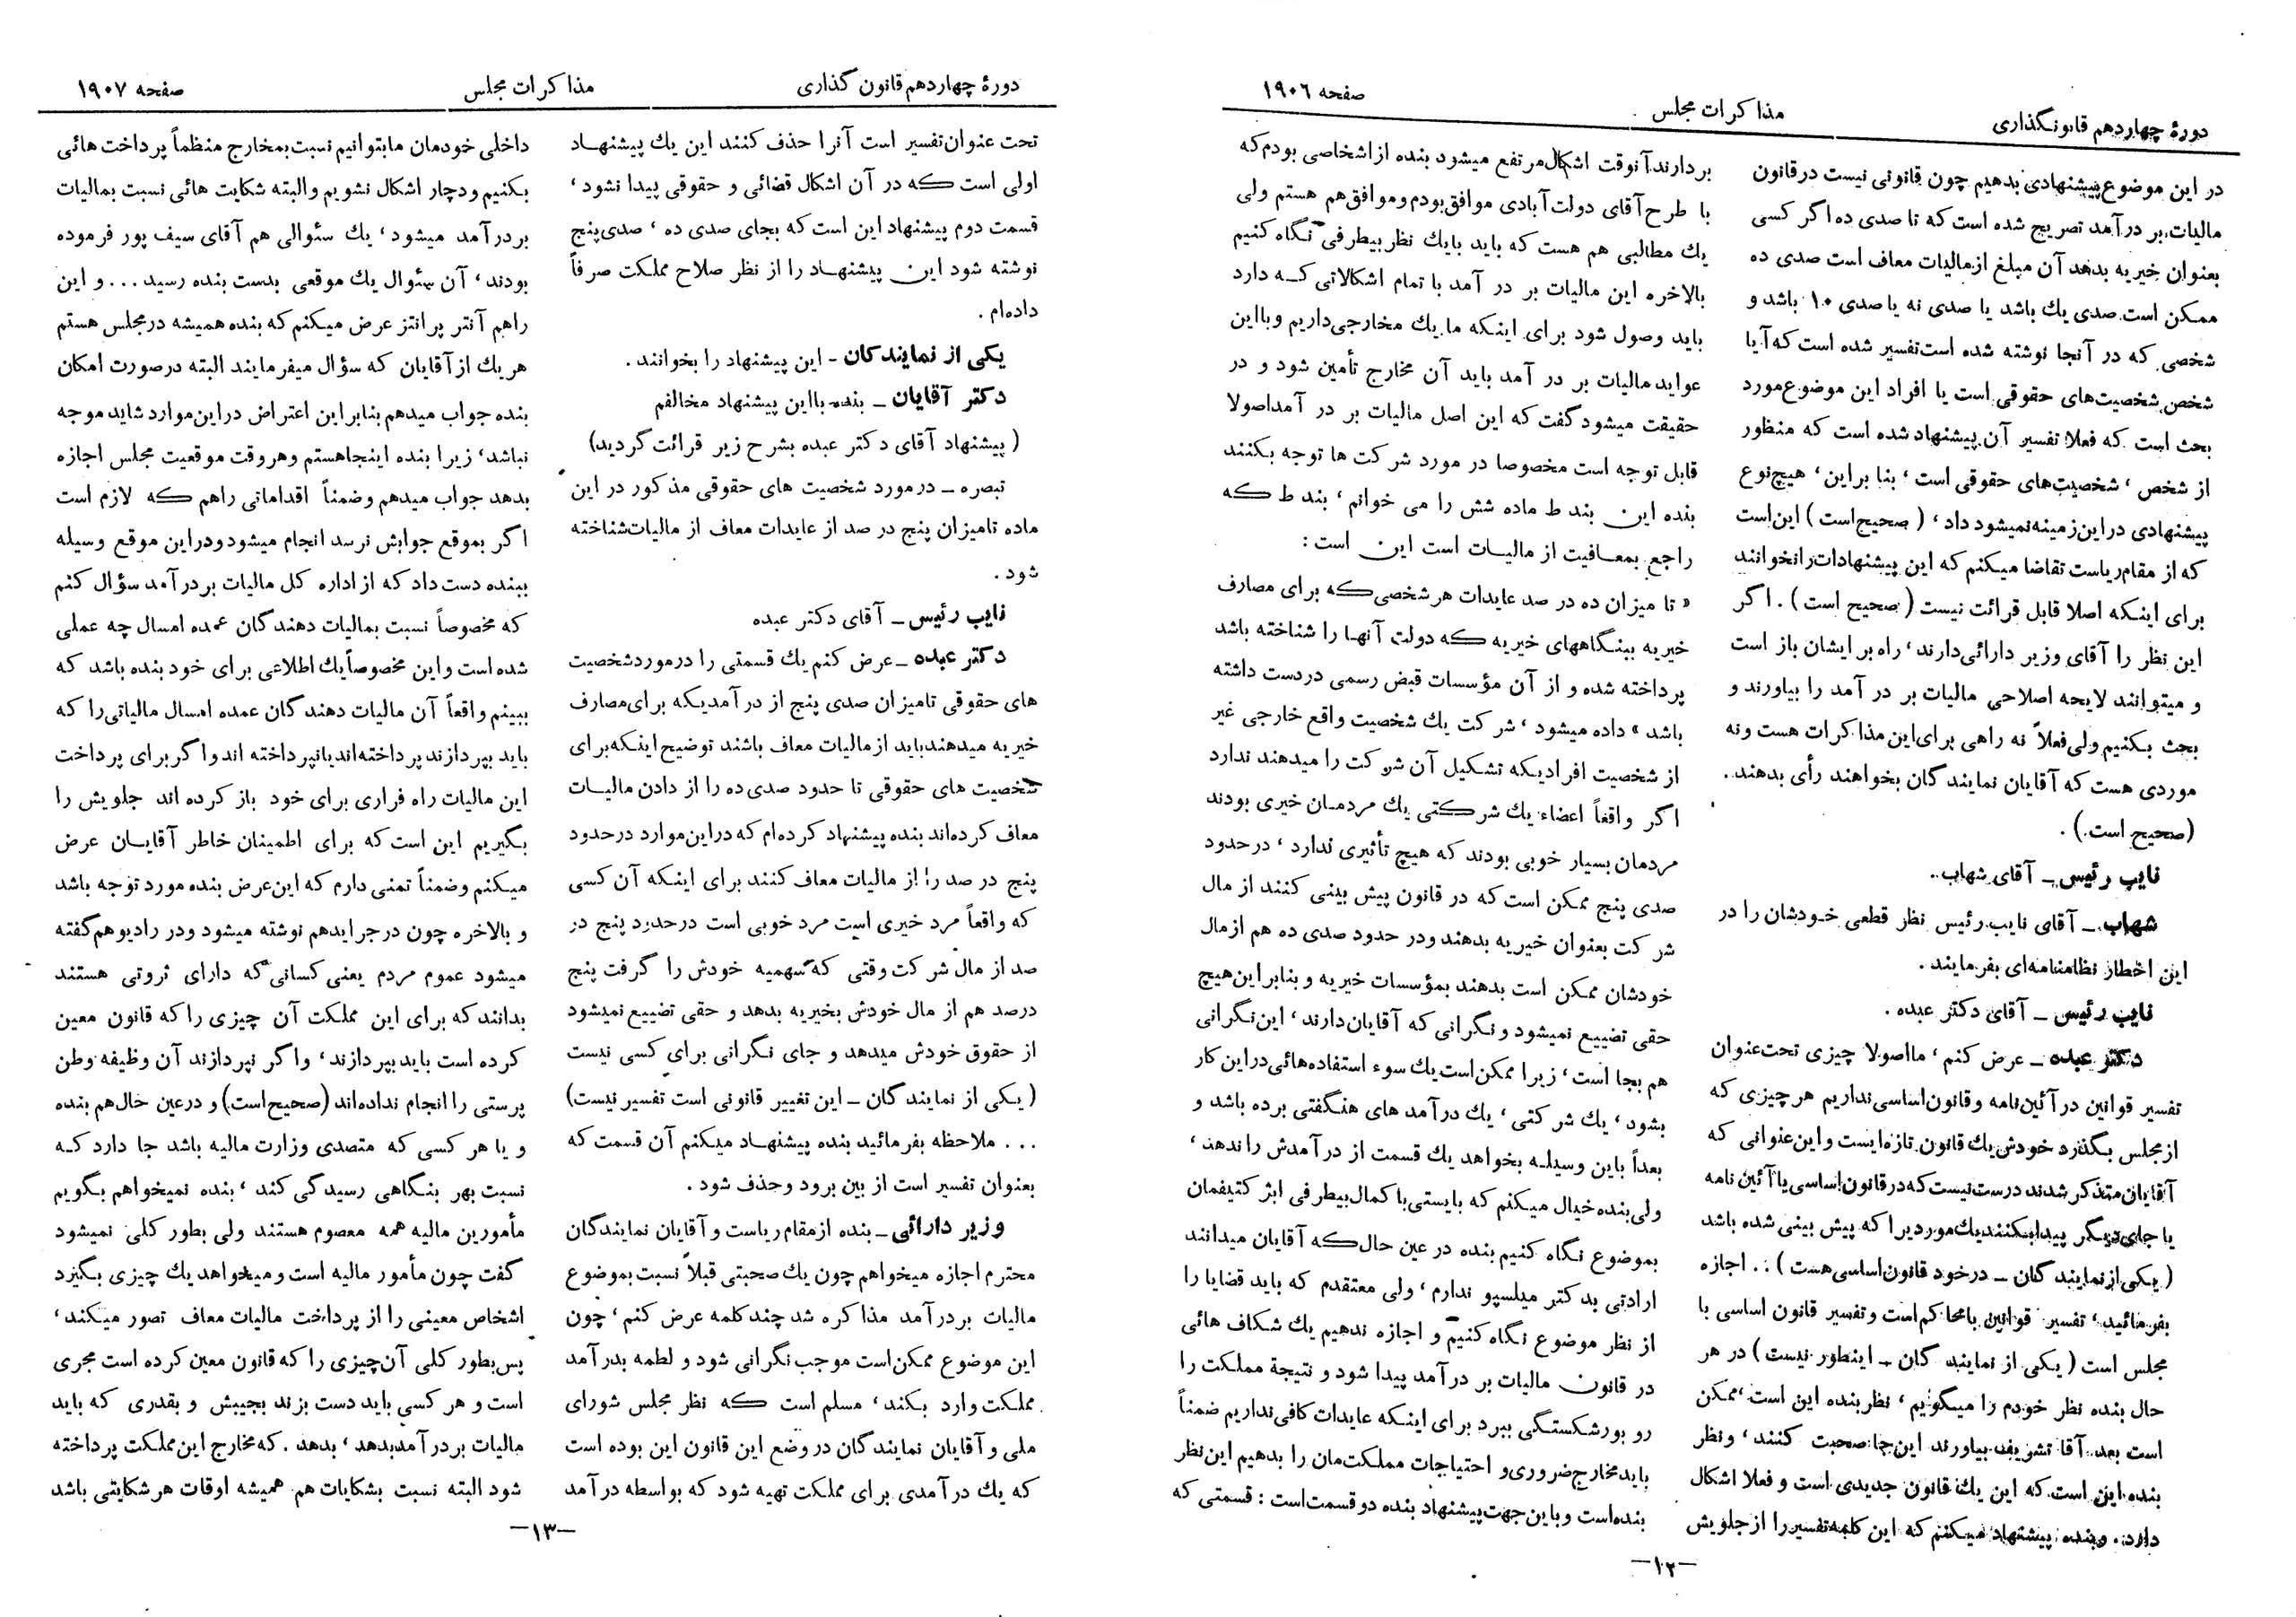 دورهٔ چهاردهم قانونگذاری
مذاکرات مجلس
صفحه ۱۹۰۶
در این موضوع پیشنهادی بدهیم چون قانونی نیست در قانون
مالیات بر درآمد تصریح شده است که تا صدی ده اگر کسی
بعنوان خیریه بدهد آن مبلغ از مالیات معاف است صدی ده
ممکن است صدی یك باشد یا صدی نه یا صدی ۱۰ باشد و
شخصی که در آنجا نوشته شده است تفسیر شده است که آیا
شخص شخصیت‌های حقوقی است یا افراد این موضوع مورد
بحث است که فعلا تفسیر آن پیشنهاد شده است که منظور
از شخص ، شخصیت‌های حقوقی است ، بنا براین ، هیچ نوع
پیشنهادی در این زمینه نمیشود داد ، ( صحیح است ) این است
که از مقام ریاست تقاضا میکنم که این پیشنهادات را نخوانند
برای اینکه اصلا قابل قرائت نیست ( صحیح است ) . اگر
این نظر را آقای وزیر دارائی دارند ، راه برایشان باز است
و میتوانند لایحه اصلاحی مالیات بر در آمد را بیاورند و
بحث بکنیم ولی فعلاً نه راهی برای این مذاکرات هست و نه
موردی هست که آقایان نمایندگان بخواهند رأی بدهند .
(صحیح است.) .
نایب رئیس ــ آقای شهاب .
شهاب ــ آقای نایب رئیس نظر قطعی خودشان را در
این اخطار نظامنامه‌ای بفرمایند .
نایب رئیس ــ آقای دکتر عبده .
دکتر عبده ــ عرض کنم ، ما اصولا چیزی تحت عنوان
تفسیر قوانین در آئین نامه و قانون اساسی نداریم هر چیزی که
از مجلس بگذرد خودش یك قانون تازه‌ایست و این عنوانی که
آقایان متذکر شدند درست نیست که در قانون اساسی یا آئین نامه
یا جای دیگر پیدا بکنند یك موردیرا که پیش بینی شده باشد
( یکی از نمایندگان ــ در خود قانون اساسی هست ) . . اجازه
بفرمائید ، تفسیر قوانین با محاکم است و تفسیر قانون اساسی با
مجلس است ( یکی از نمایندگان ــ اینطور نیست ) در هر
حال بنده نظر خودم را میگویم ، نظر بنده این است ، ممکن
است بعد آقا تشریف بیاورند این جا صحبت کنند ، و نظر
بنده این است که این یك قانون جدیدی است و فعلا اشکال
دارد . و بنده پیشنهاد میکنم که این کلمه تفسیر را از جلویش
بردارند آنوقت اشکال مرتفع میشود بنده از اشخاصی بودم که
با طرح آقای دولت آبادی موافق بودم و موافق هم هستم ولی
یك مطالبی هم هست که باید بایك نظر بیطرفی نگاه کنیم
بالاخره این مالیات بر در آمد با تمام اشکالاتی که دارد
باید وصول شود برای اینکه ما یك مخارجی داریم و با این
عواید مالیات بر در آمد باید آن مخارج تأمین شود و در
حقیقت میشود گفت که این اصل مالیات بر در آمد اصولا
قابل توجه است مخصوصا در مورد شرکت ها توجه بکنند
بنده این بند ط ماده شش را می خوانم ، بند ط که
راجع بمعافیت از مالیات است این است :
« تا میزان ده در صد عایدات هر شخصی که برای مصارف
خیریه ببنگاههای خیریه که دولت آنها را شناخته باشد
پرداخته شده و از آن مؤسسات قبض رسمی در دست داشته
باشد » داده میشود ، شرکت یك شخصیت واقع خارجی غیر
از شخصیت افرادیکه تشکیل آن شرکت را میدهند ندارد
اگر واقعاً اعضاء یك شرکتی یك مردمان خیری بودند
مردمان بسیار خوبی بودند که هیچ تأثیری ندارد ، در حدود
صدی پنج ممکن است که در قانون پیش بینی کنند از مال
شرکت بعنوان خیریه بدهند و در حدود صدی ده هم از مال
خودشان ممکن است بدهند بمؤسسات خیریه و بنابراین هیچ
حقی تضییع نمیشود و نگرانی که آقایان دارند ، این نگرانی
هم بجا است ، زیرا ممکن است یك سوء استفاده هائی در این کار
بشود ، یك شرکتی ، یك درآمد های هنگفتی برده باشد و
بعداً باین وسیله بخواهد یك قسمت از درآمدش را ندهد ،
ولی بنده خیال میکنم که بایستی با کمال بیطرفی ابژکتیفمان
بموضوع نگاه کنیم بنده در عین حال که آقایان میدانند
ارادتی بدکتر میلسپو ندارم ، ولی معتقدم که باید قضایا را
از نظر موضوع نگاه کنیم و اجازه ندهیم یك شکاف هائی
در قانون مالیات بر درآمد پیدا شود و نتیجهٔ مملکت را
رو بورشکستگی ببرد برای اینکه عایدات کافی نداریم ضمناً
باید مخارج ضروری و احتیاجات مملکت‌مان را بدهیم این نظر
بنده است و باین جهت پیشنهاد بنده دو قسمت است : قسمتی که
ــ۱۲ــ
دورهٔ چهاردهم قانون گذاری
مذاکرات مجلس
صفحه ۱۹۰۷
تحت عنوان تفسیر است آنرا حذف کنند این یك پیشنهاد
اولی است که در آن اشکال قضائی و حقوقی پیدا نشود ،
قسمت دوم پیشنهاد این است که بجای صدی ده ، صدی پنج
نوشته شود این پیشنهاد را از نظر صلاح مملکت صرفاً
داده‌ام .
یکی از نمایندگان ــ این پیشنهاد را بخوانند .
دکتر آقایان ــ بنده بااین پیشنهاد مخالفم
( پیشنهاد آقای دکتر عبده بشرح زیر قرائت گردید)
تبصره ــ در مورد شخصیت های حقوقی مذکور در این
ماده تامیزان پنج در صد از عایدات معاف از مالیات شناخته
شود .
نایب رئیس ــ آقای دکتر عبده
دکتر عبده ــ عرض کنم یك قسمتی را درمورد شخصیت
های حقوقی تامیزان صدی پنج از درآمدیکه برای مصارف
خیریه میدهند باید از مالیات معاف باشند توضیح اینکه برای
شخصیت های حقوقی تا حدود صدی ده را از دادن مالیات
معاف کرده‌اند بنده پیشنهاد کرده‌ام که در این موارد در حدود
پنج در صد را از مالیات معاف کنند برای اینکه آن کسی
که واقعاً مرد خیری است مرد خوبی است در حدود پنج در
صد از مال شرکت وقتی که سهمیه خودش را گرفت پنج
درصد هم از مال خودش بخیریه بدهد و حقی تضییع نمیشود
از حقوق خودش میدهد و جای نگرانی برای کسی نیست
( یکی از نمایندگان ــ این تغییر قانونی است تفسیر نیست)
. . . ملاحظه بفرمائید بنده پیشنهاد میکنم آن قسمت که
بعنوان تفسیر است از بین برود وحذف شود .
وزیر دارائی ــ بنده از مقام ریاست و آقایان نمایندگان
محترم اجازه میخواهم چون یك صحبتی قبلاً نسبت بموضوع
مالیات بردرآمد مذاکره شد چند کلمه عرض کنم ، چون
این موضوع ممکن است موجب نگرانی شود و لطمه بدرآمد
مملکت وارد بکند ، مسلم است که نظر مجلس شورای
ملی و آقایان نمایندگان در وضع این قانون این بوده است
که یك درآمدی برای مملکت تهیه شود که بواسطه درآمد
داخلی خودمان مابتوانیم نسبت بمخارج منظماً پرداخت هائی
بکنیم ودچار اشکال نشویم والبته شکایت هائی نسبت بمالیات
بردرآمد میشود ، یك سئوالی هم آقای سیف پور فرموده
بودند ، آن سئوال یك موقعی بدست بنده رسید . . . و این
راهم آنتر پرانتز عرض میکنم که بنده همیشه درمجلس هستم
هریك ازآقایان که سؤال میفرمایند البته درصورت امکان
بنده جواب میدهم بنابراین اعتراض دراین موارد شاید موجه
نباشد ، زیرا بنده اینجاهستم وهروقت موقعیت مجلس اجازه
بدهد جواب میدهم وضمناً اقداماتی راهم که لازم است
اگر بموقع جوابش نرسد انجام میشود ودراین موقع وسیله
ببنده دست داد که از اداره کل مالیات بردرآمد سؤال کنم
که مخصوصاً نسبت بمالیات دهندگان عمده امسال چه عملی
شده است واین مخصوصاً یك اطلاعی برای خود بنده باشد که
ببینم واقعاً آن مالیات دهندگان عمده امسال مالیاتی را که
باید بپردازند پرداخته‌اند یا نپرداخته اند واگر برای پرداخت
این مالیات راه فراری برای خود باز کرده اند جلویش را
بگیریم این است که برای اطمینان خاطر آقایان عرض
میکنم وضمناً تمنی دارم که این عرض بنده مورد توجه باشد
و بالاخره چون درجرایدهم نوشته میشود ودر رادیو هم گفته
میشود عموم مردم یعنی کسانی که دارای ثروتی هستند
بدانند که برای این مملکت آن چیزی را که قانون معین
کرده است باید بپردازند ، واگر نپردازند آن وظیفه وطن
پرستی را انجام نداده‌اند (صحیح است) و درعین حال هم بنده
و یا هر کسی که متصدی وزارت مالیه باشد جا دارد که
نسبت بهر بنگاهی رسیدگی کند ، بنده نمیخواهم بگویم
مأمورین مالیه همه معصوم هستند ولی بطور کلی نمیشود
گفت چون مأمور مالیه است ومیخواهد یك چیزی بگیرد
اشخاص معینی را از پرداخت مالیات معاف تصور میکند ،
پس بطور کلی آن چیزی را که قانون معین کرده است مجری
است و هر کسی باید دست بزند بجیبش و بقدری که باید
مالیات بردرآمد بدهد ، بدهد . که مخارج این مملکت پرداخته
شود البته نسبت بشکایات هم همیشه اوقات هرشکایتی باشد
ــ۱۳ــ